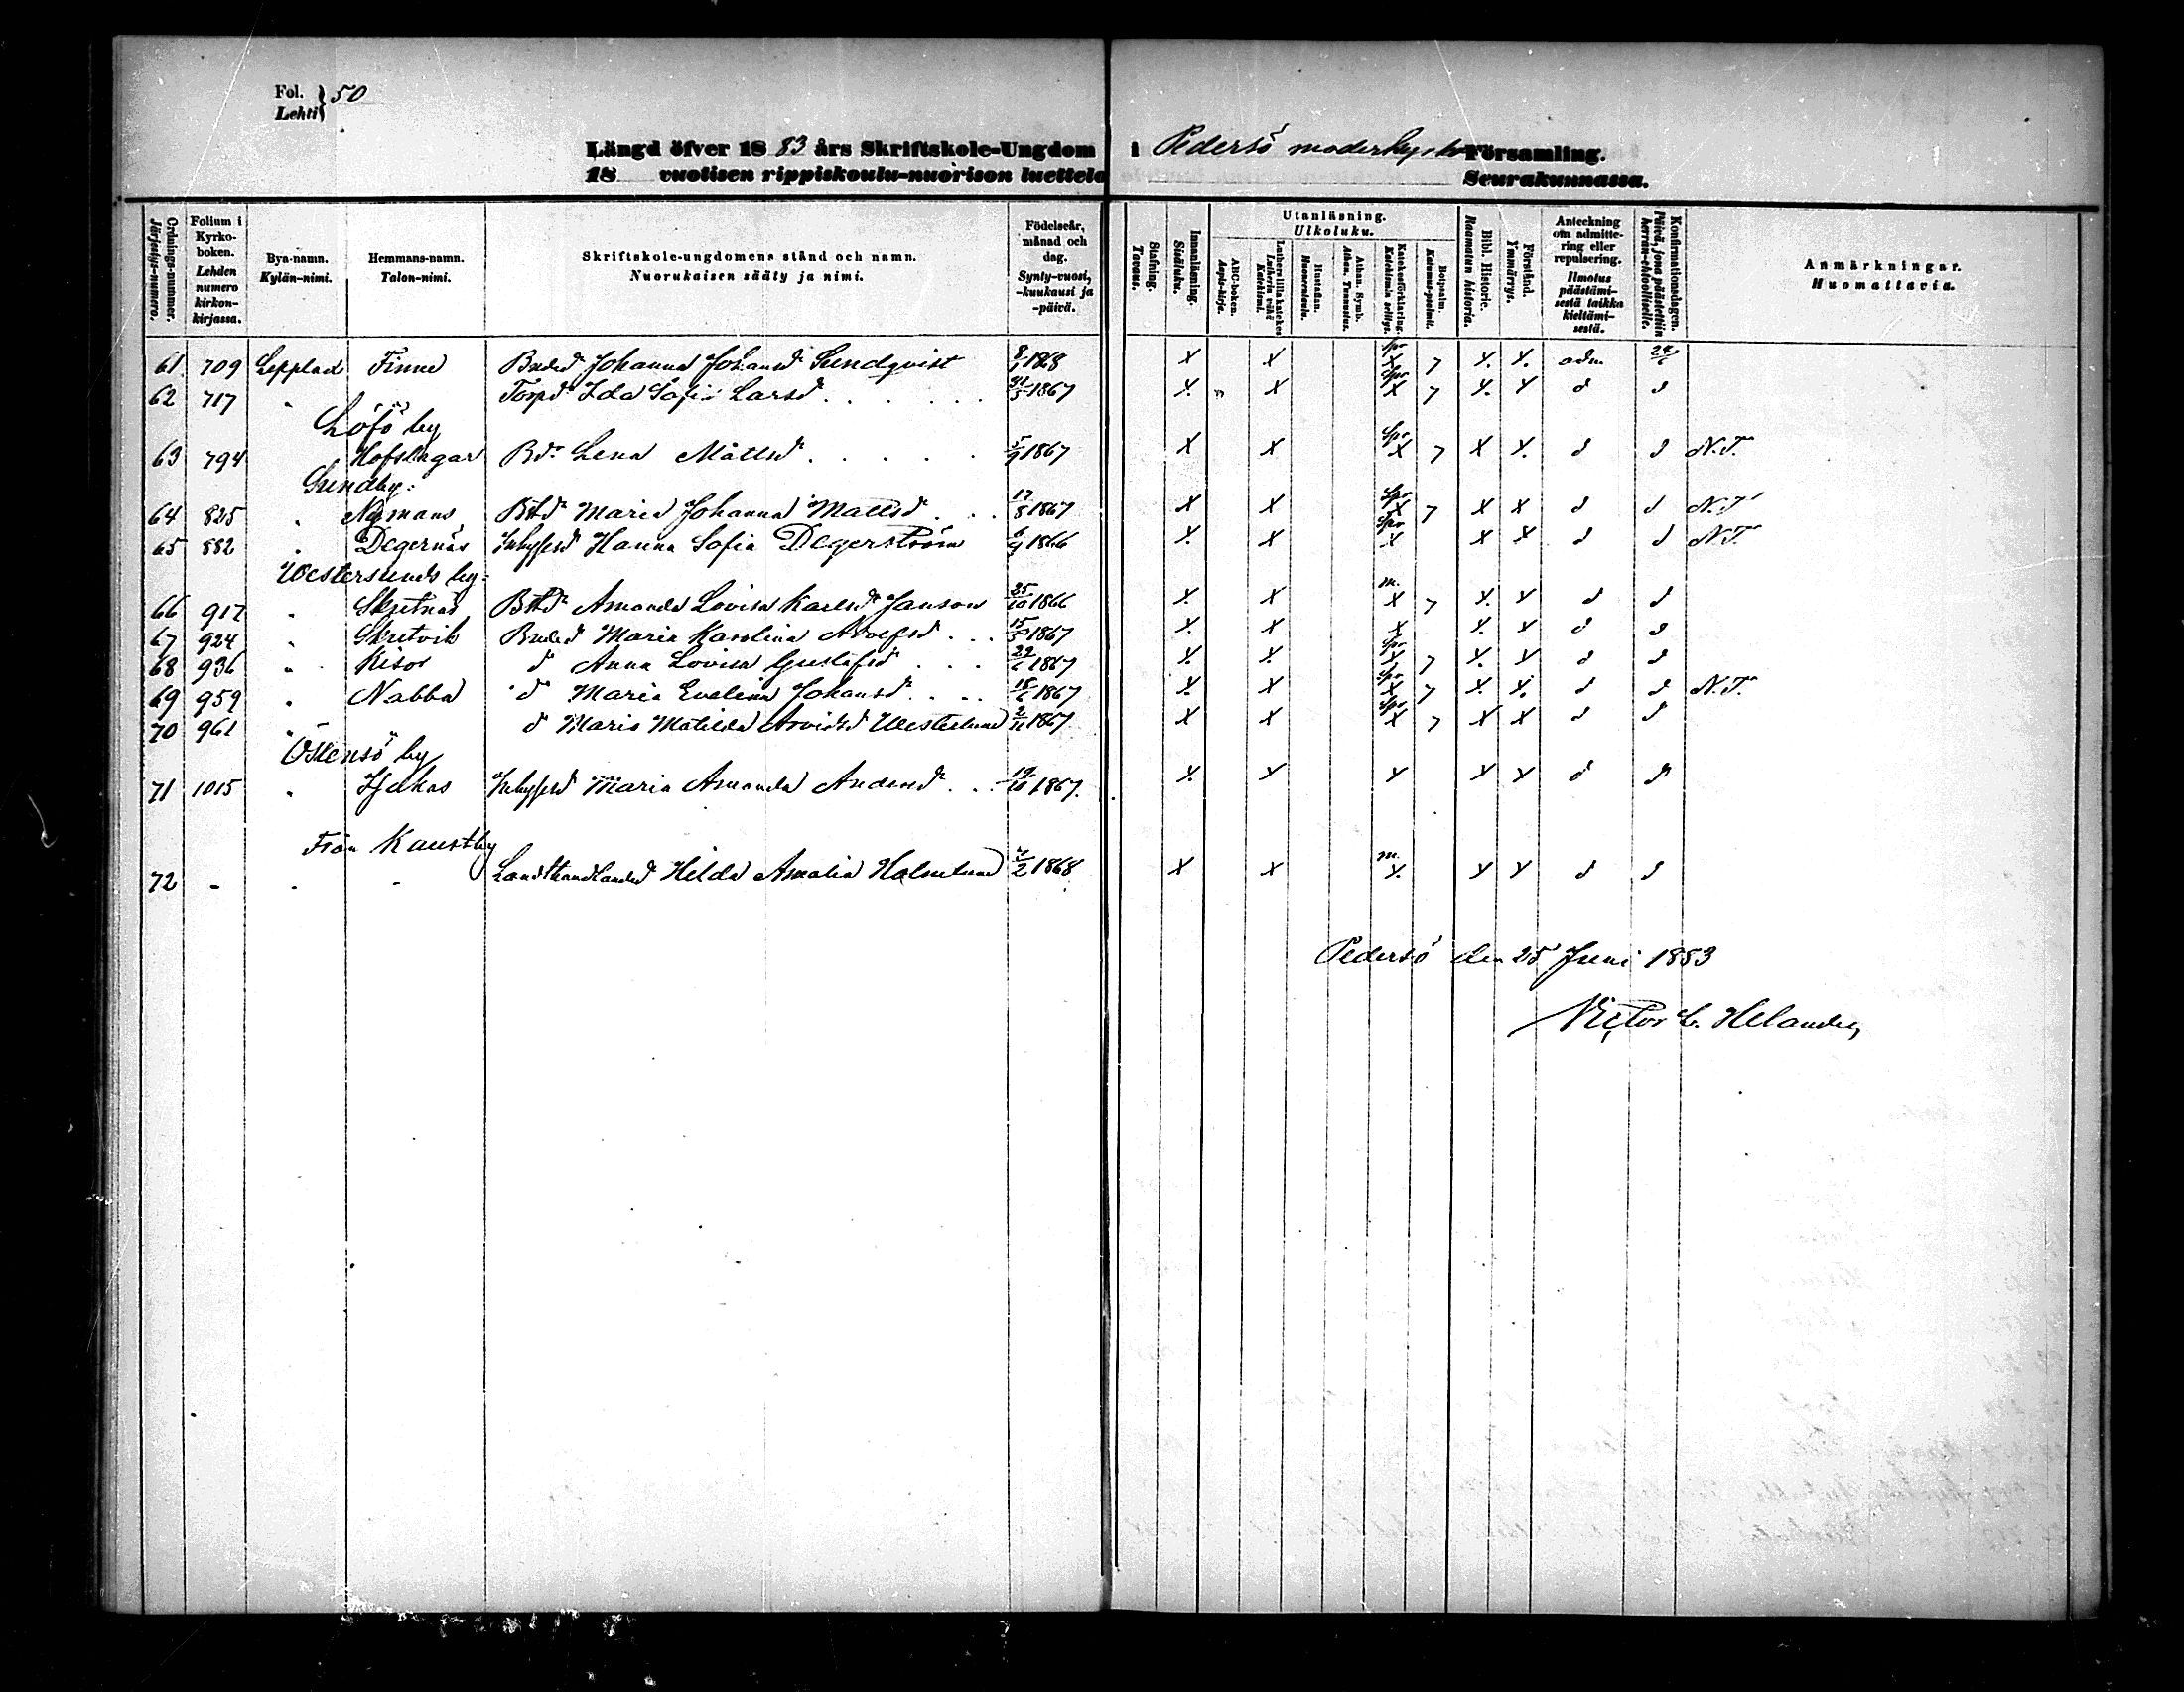 Fol. Lehti } 50
Längd öfver 1883 års Skriftskole-Ungdom i Pedersö moderkyrko Församling.
18 vuotisen rippiskoulu-nuorison luettelo Seurakunnassa.
Ordnings-nummer. Järjestys-numero.
Folium i Kyrko-boken. Lehden numero kirkon-kirjassa.
Bya-namn. Kylän-nimi.
Hemmans-namn. Talon-nimi.
Skriftskole-ungdomens stånd och namn. Nuorukaisen sääty ja nimi.
Födelseår, månad och dag. Synty-vuosi, -kuukausi ja -päivä.
Stafning. Tavaus.
Innanläsning. Sisäluku.
Utanläsning. Ulkoluku.
ABC-boken. Aapis-kirja.
Luthers lilla katekes Lutherin vähä Katekismi.
Hustaflan. Huoneentaulu.
Athan. Symb. Athan. Tunnustus.
Katekesförklaring. Katekismin selitys.
Botpsalm. Katumus-psalmit.
Bibl. Historie. Raamatun historia.
Förstånd. Ymmärrys.
Anteckning om admittering eller repulsering. Ilmotus päästämisestä taikka kieltämisestä.
Konfirmationsdagen. Päivä, jona päästettiin herran-ehtoolliselle.
Anmärkningar. Huomattavia.
61 709 Lepplax Finne Bonded Johanna Johansdr Sundqvist 8/1 1868 X X Spr X 7 X. X. adm 24/6
62 717 " Torpdr Ida Sofia Larsdr . . . . . 31/5 1867 X. " X Spr X 7 X. X d d
Löfö by
63 794 Hofslagar Bdr Lena Mattsdr . . . . . 5/9 1867 X X Spr X 7 X X. d d N.T.
Sundby:
64 825 " Nymans Bdr Maria Johanna Mattsdr . . . 17/8 1867 X X Spr X 7 X X d d N.T.
65 882 " Degernäs Inhysesd Hanna Sofia Degerström 6/9 1866 X. X Spr X X X d d N.T.
Westersunds by:
66 917 " Skutnäs Bdr Amanda Lovisa Karlsdr Janson 25/10 1866 X. X m. X 7 X. X d d
67 924 " Skutvik Bonded Maria Karolina Adolfsd . . . 15/5 1867 X. X X X. X d d
68 936 " Kisor d Anna Lovisa Gustafsd . . . 29/6 1867 X. X. Spr X 7 X. X d d
69 959 " Nabba d Maria Evelina Johansd . . . 18/6 1867 X. X Spr X 7 X. X. d d N.T.
70 961 " d Maria Matilda Arvidsd Westerlund 2/11 1867 X X Spr X 7 X X d d
Östensö by
71 1015 " Hjulas Inhysesd Maria Amanda Andersd . . . 19/10 1867. X. X X X X d d
Från Kaustby
72 - " - Landthandlared Hilda Amalia Holmlund 7/2 1868 X X m. X. X X d d
Pedersö den 25 Juni 1883
Victor L. Helander,